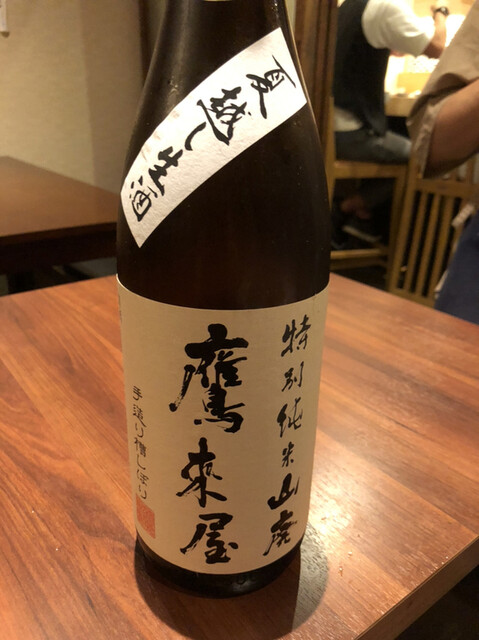 夏越し生酒
特別純米山廃
鷹来屋
手造り槽しぼり